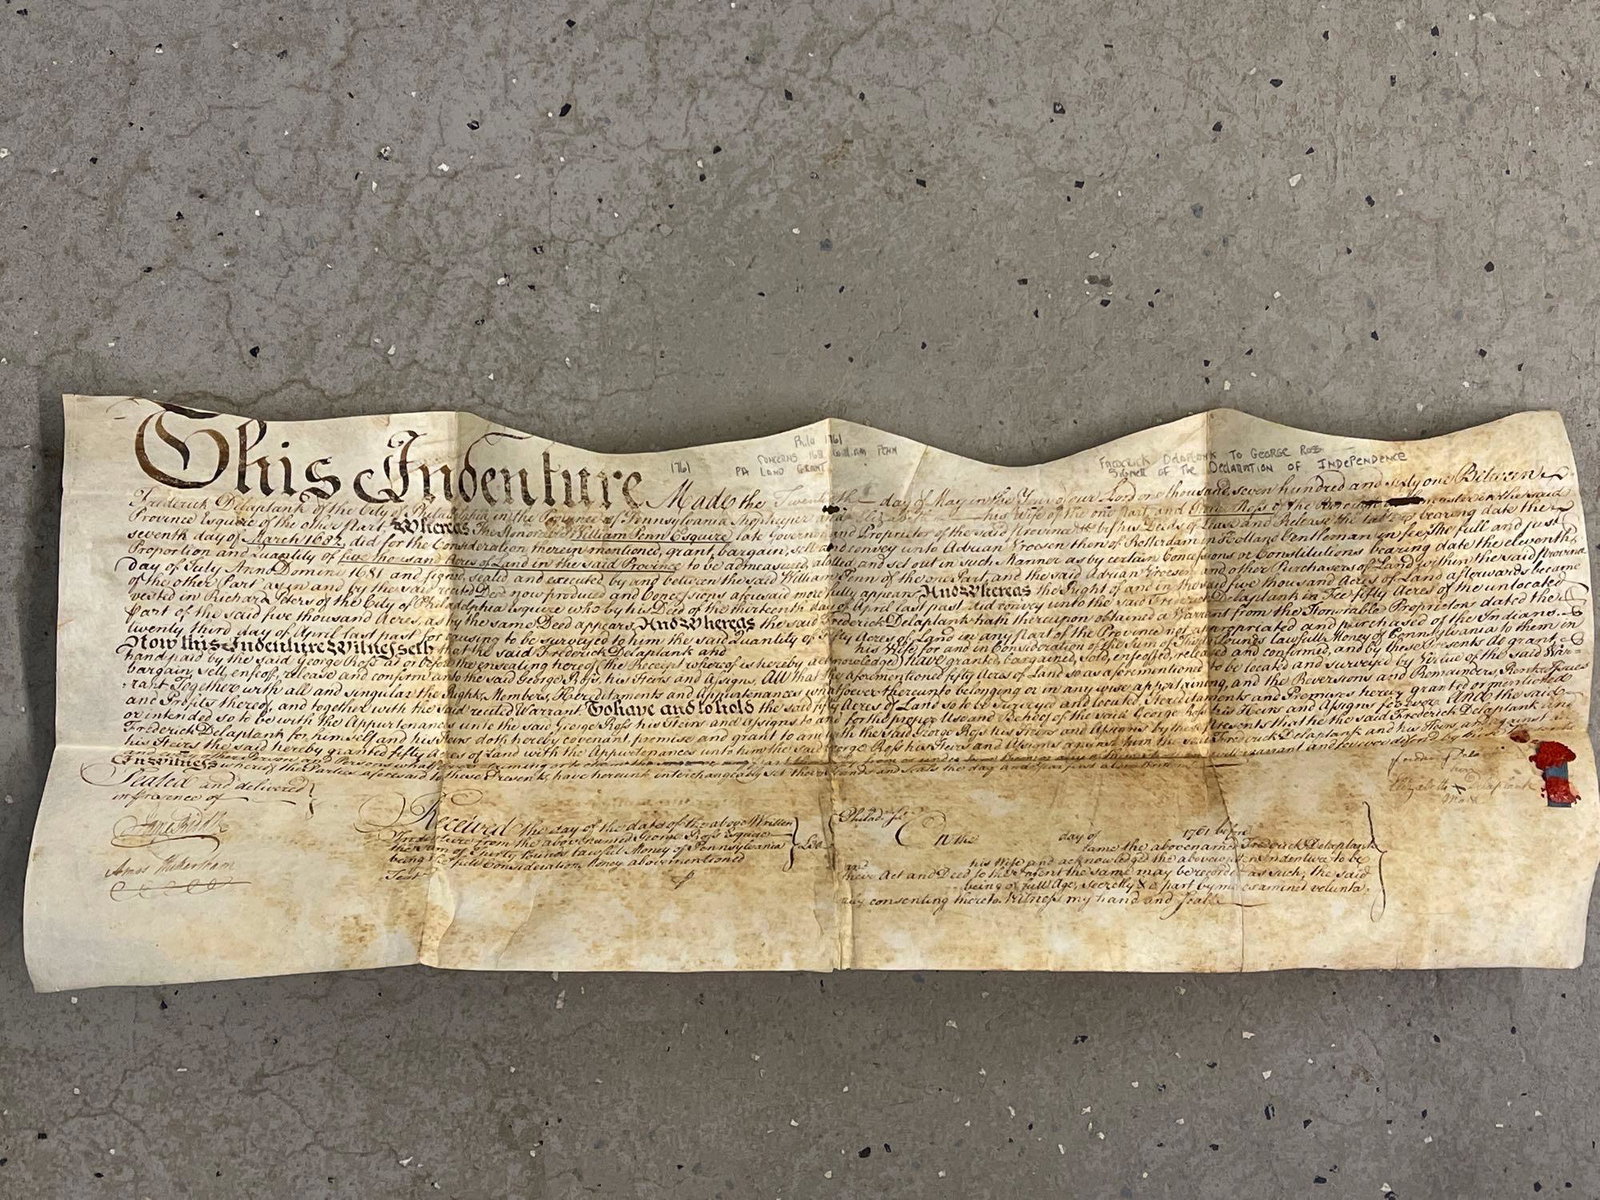 This Indenture Made the Twentieth day of May in the Year of our Lord one thousand seven hundred and sixty one Between
1761
Phila 1761
Concerns 1682 William Penn
PA Land Grant
Frederick Delaplank to George Ross
Signer of the Declaration of Independence
Frederick Delaplank of the City of Philadelphia in the Province of Pennsylvania Shopkeeper and his Wife of the one part, and George Ross of the
Province Esquire of the other Part Whereas The Honorable William Penn Esquire late Governor and Proprietor of the said Province by his Deeds of Lease and Release the bearing date the
seventh day of March 1682, did for the Consideration therein mentioned, grant, bargain, sell and convey unto Adrian Vroesen then of Rotterdam in Holland Gentleman in fee, The full and just
Proportion and Quantity of five thousand Acres of Land in the said Province to be admeasured, allotted, and set out in such Manner as by certain Concessions or Constitutions bearing date the eleventh
day of July Anno Domini 1681 and signed, sealed and executed by and between the said William Penn of the one Part, and the said Adrian Vroesen and other Purchasers of Land within the said Province
of the other Part as in and by the said recited Deed now produced and Concessions aforesaid more fully appears And Whereas the Right of and in the said five thousand Acres of Land afterwards became
vested in Richard Peters of the City of Philadelphia Esquire who by his Deed of the thirteenth day of April last past did convey unto the said Frederick Delaplank in Fee fifty Acres of the unlocated
Part of the said five thousand Acres, as by the same Deed appears, And Whereas the said Frederick Delaplank hath thereupon obtained a Warrant from the Honorable Proprietors dated the
twenty third day of April last past for causing to be surveyed to him the said Quantity of fifty Acres of Land in any Part of the Province not appropriated and purchased of the Indians.
Now this Indenture Witnesseth that the said Frederick Delaplank and his Wife for and in Consideration of the Sum of lawful Money of Pennsylvania to them in
hand paid by the said George Ross at or before the ensealing hereof the Receipt whereof is hereby acknowledged Have granted, bargained, sold, enfeoffed, released and confirmed, and by these Presents do grant,
bargain, sell, enfeoff, release and confirm unto the said George Ross, his Heirs and Assigns, All that the aforementioned fifty Acres of Land so as aforementioned to be located and surveyed by Virtue of the said War-
rant Together with all and singular the Rights, Members, Hereditaments and Appurtenances whatsoever thereunto belonging or in any wise appertaining, and the Reversions and Remainders, Rents Issues
and Profits thereof, and together with the said recited Warrant To have and to hold the said fifty Acres of Land so to be surveyed and located Hereditaments and Premises hereby granted or mentioned
or intended so to be with the Appurtenances unto the said George Ross his Heirs and Assigns to and for the proper Use and Behoof of the said George Ross his Heirs and Assigns forever And the said
Frederick Delaplank for himself and his Heirs doth hereby Covenant promise and grant to and with the said George Ross his Heirs and Assigns by these Presents that he the said Frederick Delaplank and
his Heirs the said hereby granted fifty Acres of Land with the Appurtenances unto him the said George Ross his Heirs and Assigns against him the said Frederick Delaplank and his Heirs and against
warrant and forever defend by these
In Witness whereof the Parties aforesaid to these Presents have hereunto interchangeably set their Hands and Seals the day and Year first above
Sealed and delivered
in Presence of
Received the day of the date of the above Written
Indenture from the abovenamed George Ross Esquire
the Sum of Lawful Money of Pennsylvania
being the full Consideration Money abovementioned
Test
Philad. Ss.
On the day of 1761 before
came the abovenamed Frederick Delaplank
and his Wife and acknowledged the above written Indenture to be
their Act and Deed to the Intent the same may be recorded as such, the said
being of full Age, secretly & a part by me examined volunta-
rily consenting thereto. Witness my hand and Seal
Elizabeth Delaplank
mark